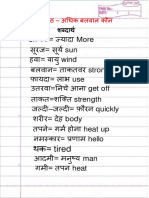 पाठ – अधिक बलवान कौन
शब्दार्थ
= ज्यादा More
सूरज= सूर्य sun
हवा= वायु wind
बलवान= ताकतवर strong
फायदा= लाभ use
उतरवा=निचे आना get off
ताकत=शक्ति strength
जल्दी–जल्दी= फौरन quickly
शरीर= देह body
तपने= गर्म होना heat up
नमस्कार= प्रणाम hello
थक= tired
आदमी= मनुष्य man
गर्मी= तपन heat